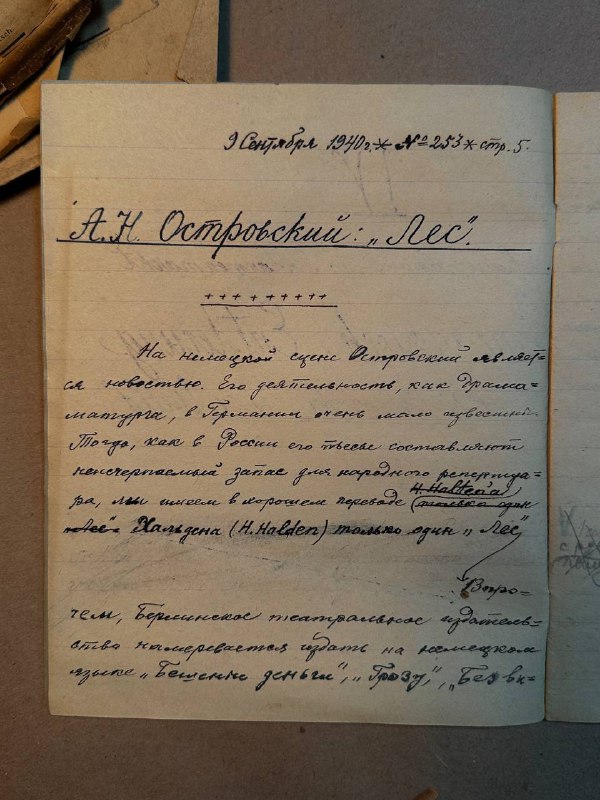 9 Сентября 1940 г. * № 253 * стр. 5.
А. Н. Островский: „Лес".
+++++++++
На немецкой сцене Островский являет-
ся новостью. Его деятельность, как драма-
матурга, в Германии очень мало известна.
Тогда, как в России его пьесы составляют
неисчерпаемый запас для народного репертуа-
H. Halden'a
ра, мы имеем в хорошем переводе (только один
„Лес" Хальдена (H. Halden) только один „Лес"
Впро-
чем, Берлинское театральное издатель-
ство намеревается издать на немецком
языке „Бешенные деньги", „Грозу", „Без ви-